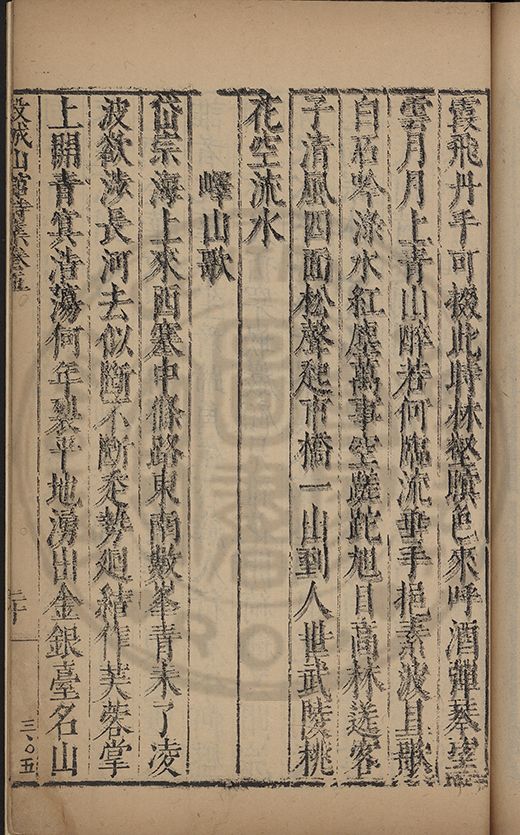 霞飛丹手可掇此時林壑暝色來呼酒彈琴望
雲月月上青山醉若何臨流垂手挹素波且歌
白石吟淥水紅塵萬事空蹉跎旭日高林送客
子清風四面松聲起市橋一山到人世武陵桃
花空流水
嶧山歌
岱宗海上來西塞中條路東南數峯青未了凌
波欲涉長河去似斷不斷奔勢廻結作芙蓉掌
上開青冥浩蕩何年裂平地湧出金銀臺名山
穀城山館詩集卷五
二十
三〇五